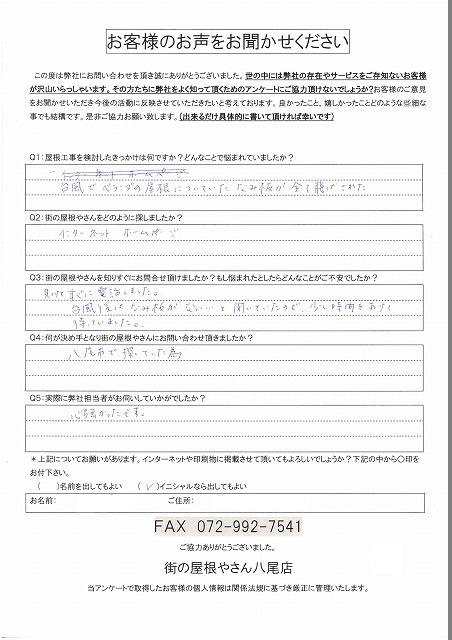 お客様のお声をお聞かせください
この度は弊社にお問い合わせを頂き誠にありがとうございました。世の中には弊社の存在やサービスをご存知ないお客様
が沢山いらっしゃいます。その方たちに弊社をよく知って頂くためのアンケートにご協力頂けないでしょうか?お客様のご意見
をお聞かせいただき今後の活動に反映させていただきたいと考えております。良かったこと、嬉しかったことどのような些細な
事でも結構です。是非ご協力お願い致します。(出来るだけ具体的に書いて頂ければ幸いです)
Q1:屋根工事を検討したきっかけは何ですか?どんなことで悩まれていましたか?
インターネット ホームページ
台風でベランダの屋根についていた なみ板が全て飛ばされた
Q2:街の屋根やさんをどのように探しましたか?
インターネット ホームページ
Q3:街の屋根やさんを知りすぐにお問合せ頂けましたか?もし悩まれたとしたらどんなことがご不安でしたか?
見つけてすぐに電話しました。
台風後は なみ板がない…と聞いていたので、少し時間をあけて
待っていました。
Q4:何が決め手となり街の屋根やさんにお問い合わせ頂きましたか?
八尾市で探していた為
Q5:実際に弊社担当者がお伺いしていかがでしたか?
心強かったです。
＊上記についてお願いがあります。インターネットや印刷物に掲載させて頂いてもよろしいでしょうか?下記の中から〇印を
お付下さい。
( )名前を出してもよい (✓)イニシャルなら出してもよい
お名前: ご住所:
FAX 072-992-7541
ご協力ありがとうございました。
街の屋根やさん八尾店
当アンケートで取得したお客様の個人情報は関係法規に基づき厳正に管理いたします。